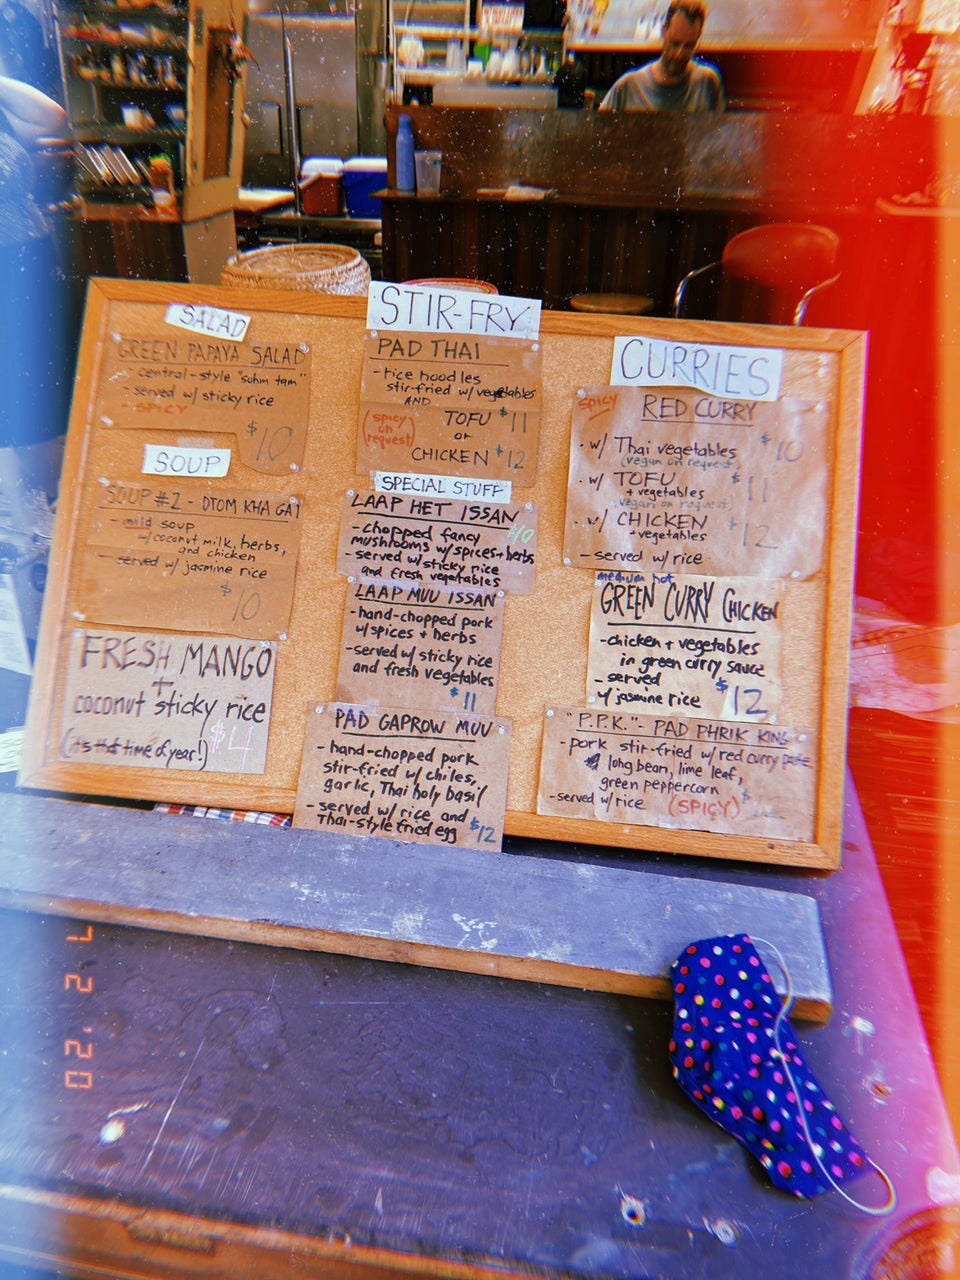 SALAD
GREEN PAPAYA SALAD
- central-style "suhm tam"
- served w/ sticky rice
- SPICY
$10
SOUP
SOUP #2 - DTOM KHA GAI
- mild soup
w/ coconut milk, herbs,
and chicken
- served w/ jasmine rice
$10
FRESH MANGO
+
coconut sticky rice
(it's that time of year!) $4
STIR-FRY
PAD THAI
- rice noodles
stir-fried w/ vegetables
AND
(spicy on request)
TOFU $11
or
CHICKEN $12
SPECIAL STUFF
LAAP HET ISSAN
$10
- chopped fancy
mushrooms w/ spices + herbs
- served w/ sticky rice
and fresh vegetables
LAAP MUU ISSAN
- hand-chopped pork
w/ spices + herbs
- served w/ sticky rice
and fresh vegetables
$11
PAD GAPROW MUU
- hand-chopped pork
stir-fried w/ chiles,
garlic, Thai holy basil
- served w/ rice and
Thai-style fried egg $12
CURRIES
spicy
RED CURRY
- w/ Thai vegetables $10
(vegan on request)
- w/ TOFU $11
+ vegetables
(vegan on request)
- w/ CHICKEN $12
+ vegetables
- served w/ rice
medium hot
GREEN CURRY CHICKEN
- chicken + vegetables
in green curry sauce
- served
w/ jasmine rice $12
"P.P.K." - PAD PHRIK KING
- pork stir-fried w/ red curry paste
long bean, lime leaf,
green peppercorn
- served w/ rice (SPICY)
7 2 '20